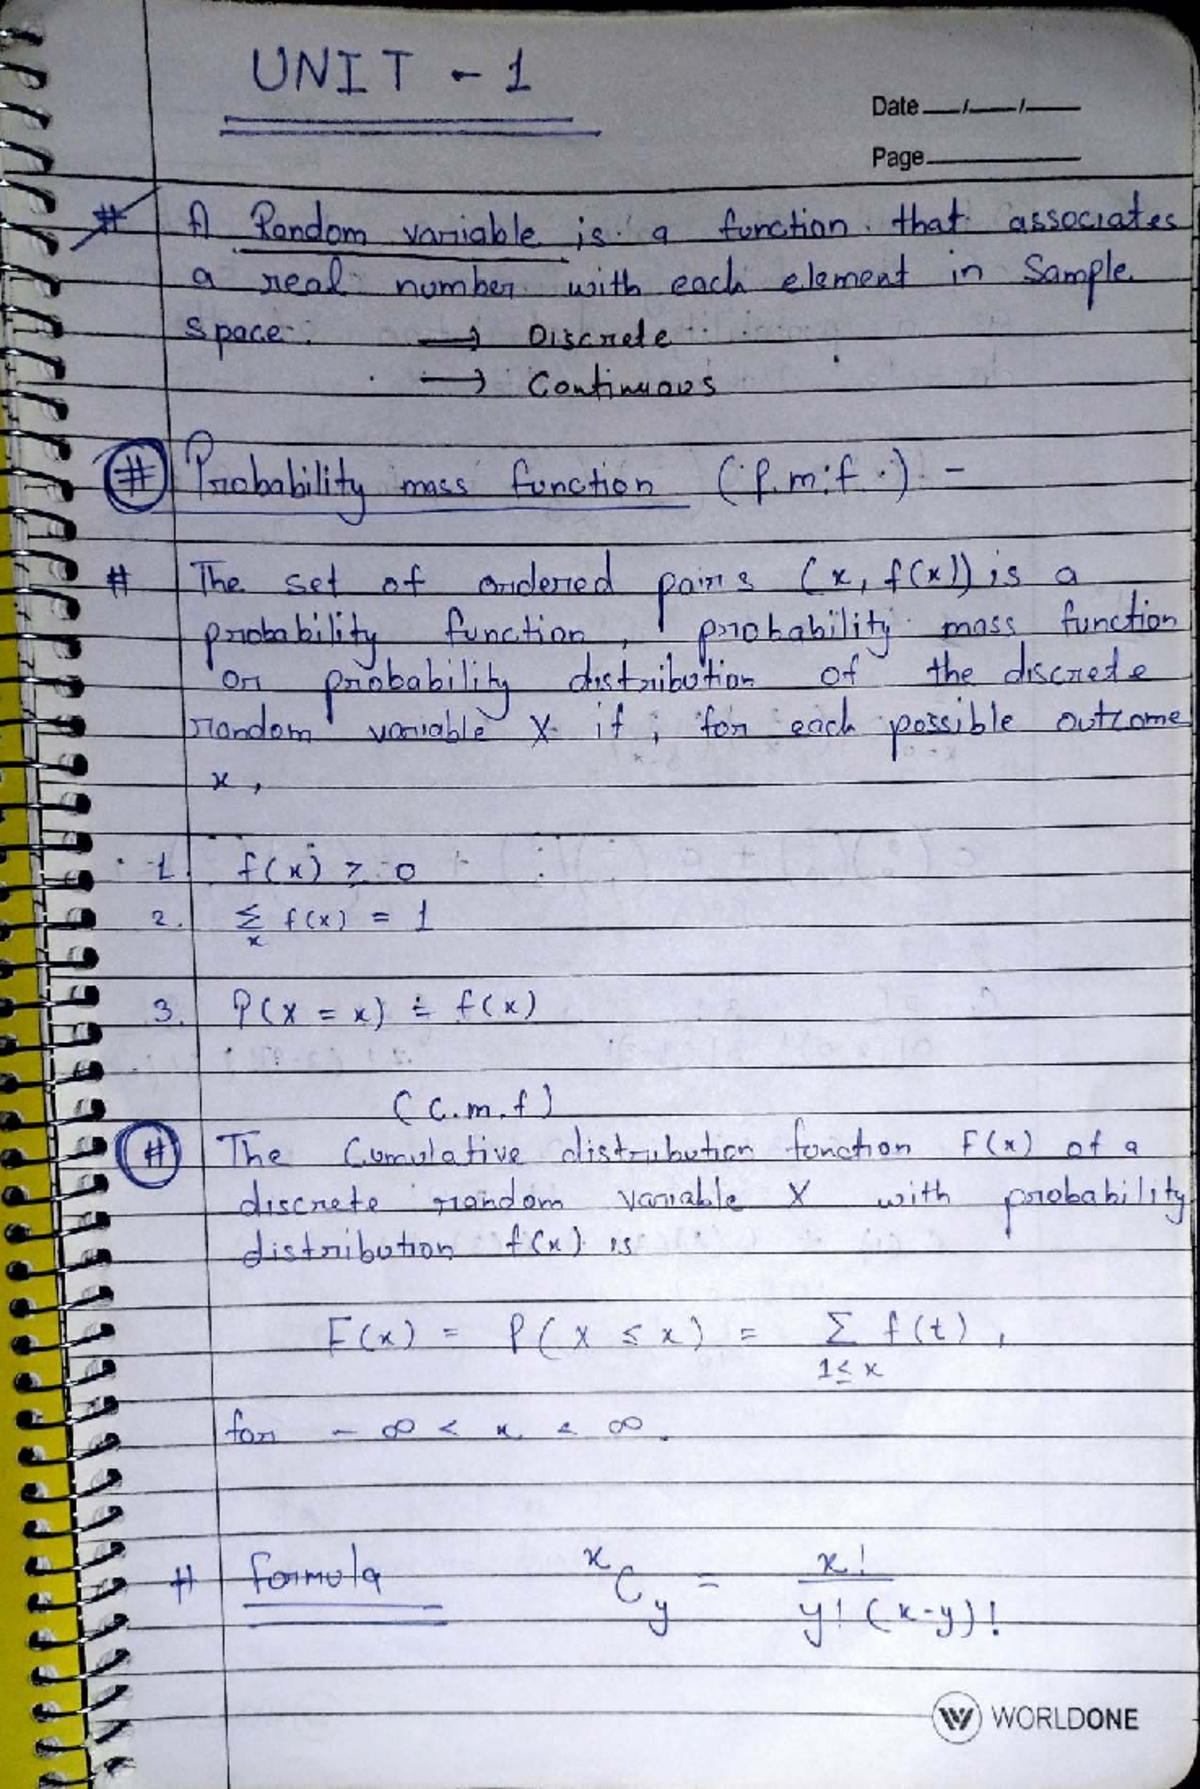 UNIT - 1
Date __/__/__
Page ______
# A Random variable is a function that associates
a real number with each element in Sample
space. → Discrete
→ Continuous
# Probability mass function (p.m.f.) -
# The set of ordered pairs (x, f(x)) is a
probability function, probability mass function
or probability distribution of the discrete
random variable X if, for each possible outcome
x,
1. f(x) ≥ 0
2. Σ_x f(x) = 1
3. P(X = x) = f(x)
(C.m.f)
# The Cumulative distribution function F(x) of a
discrete random variable X with probability
distribution f(x) is
F(x) = P(X ≤ x) = Σ_{1≤x} f(t),
for -∞ < x < ∞.
# formula xCy = x! / y!(x-y)!
WORLDONE